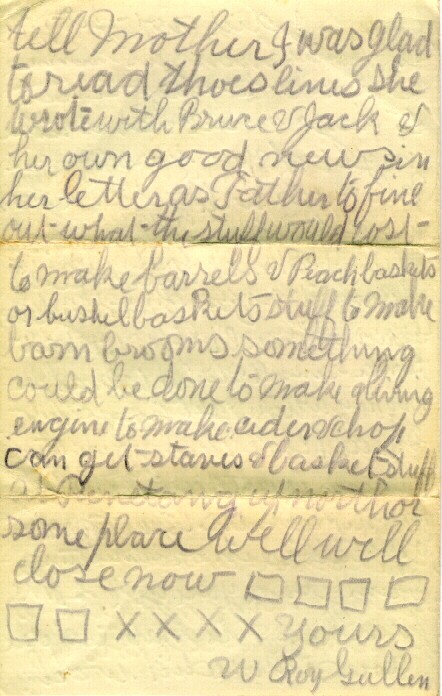 tell Mother I was glad
to read thoes lines she
wrote with Bruce & Jack &
her own good news in
her letter as Father to fine
out what the stuff would cost
to make barrels & Peach baskets
or bushel baskets stuff to make
barn brooms something
could be done to make a living
engine to make cider & chop
can get staves & basket stuff
at Penetang up north or
some place Well will
close now □ □ □ □
□ □ X X X X Yours
W Roy Gullen